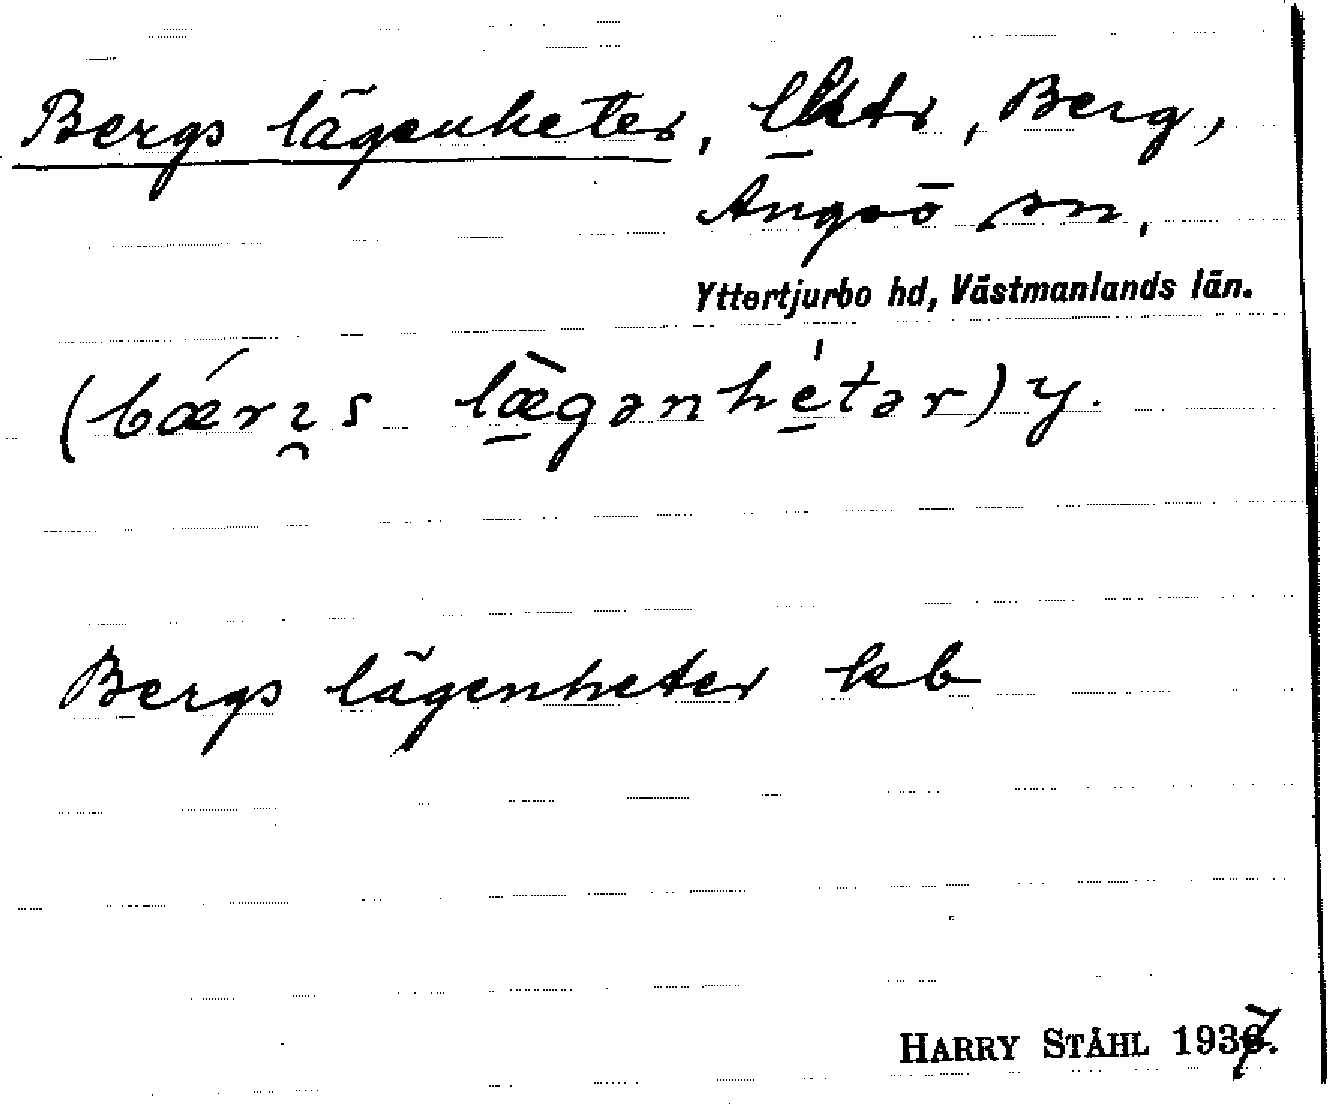 Bergs lägenheter, lhtr, Berg,
Ängsö sn,
Yttertjurbo hd, Västmanlands län.
(bǽrı̯s læ̀gənhé̱tər) y.
Bergs lägenheter kb
HARRY STÅHL 1937.